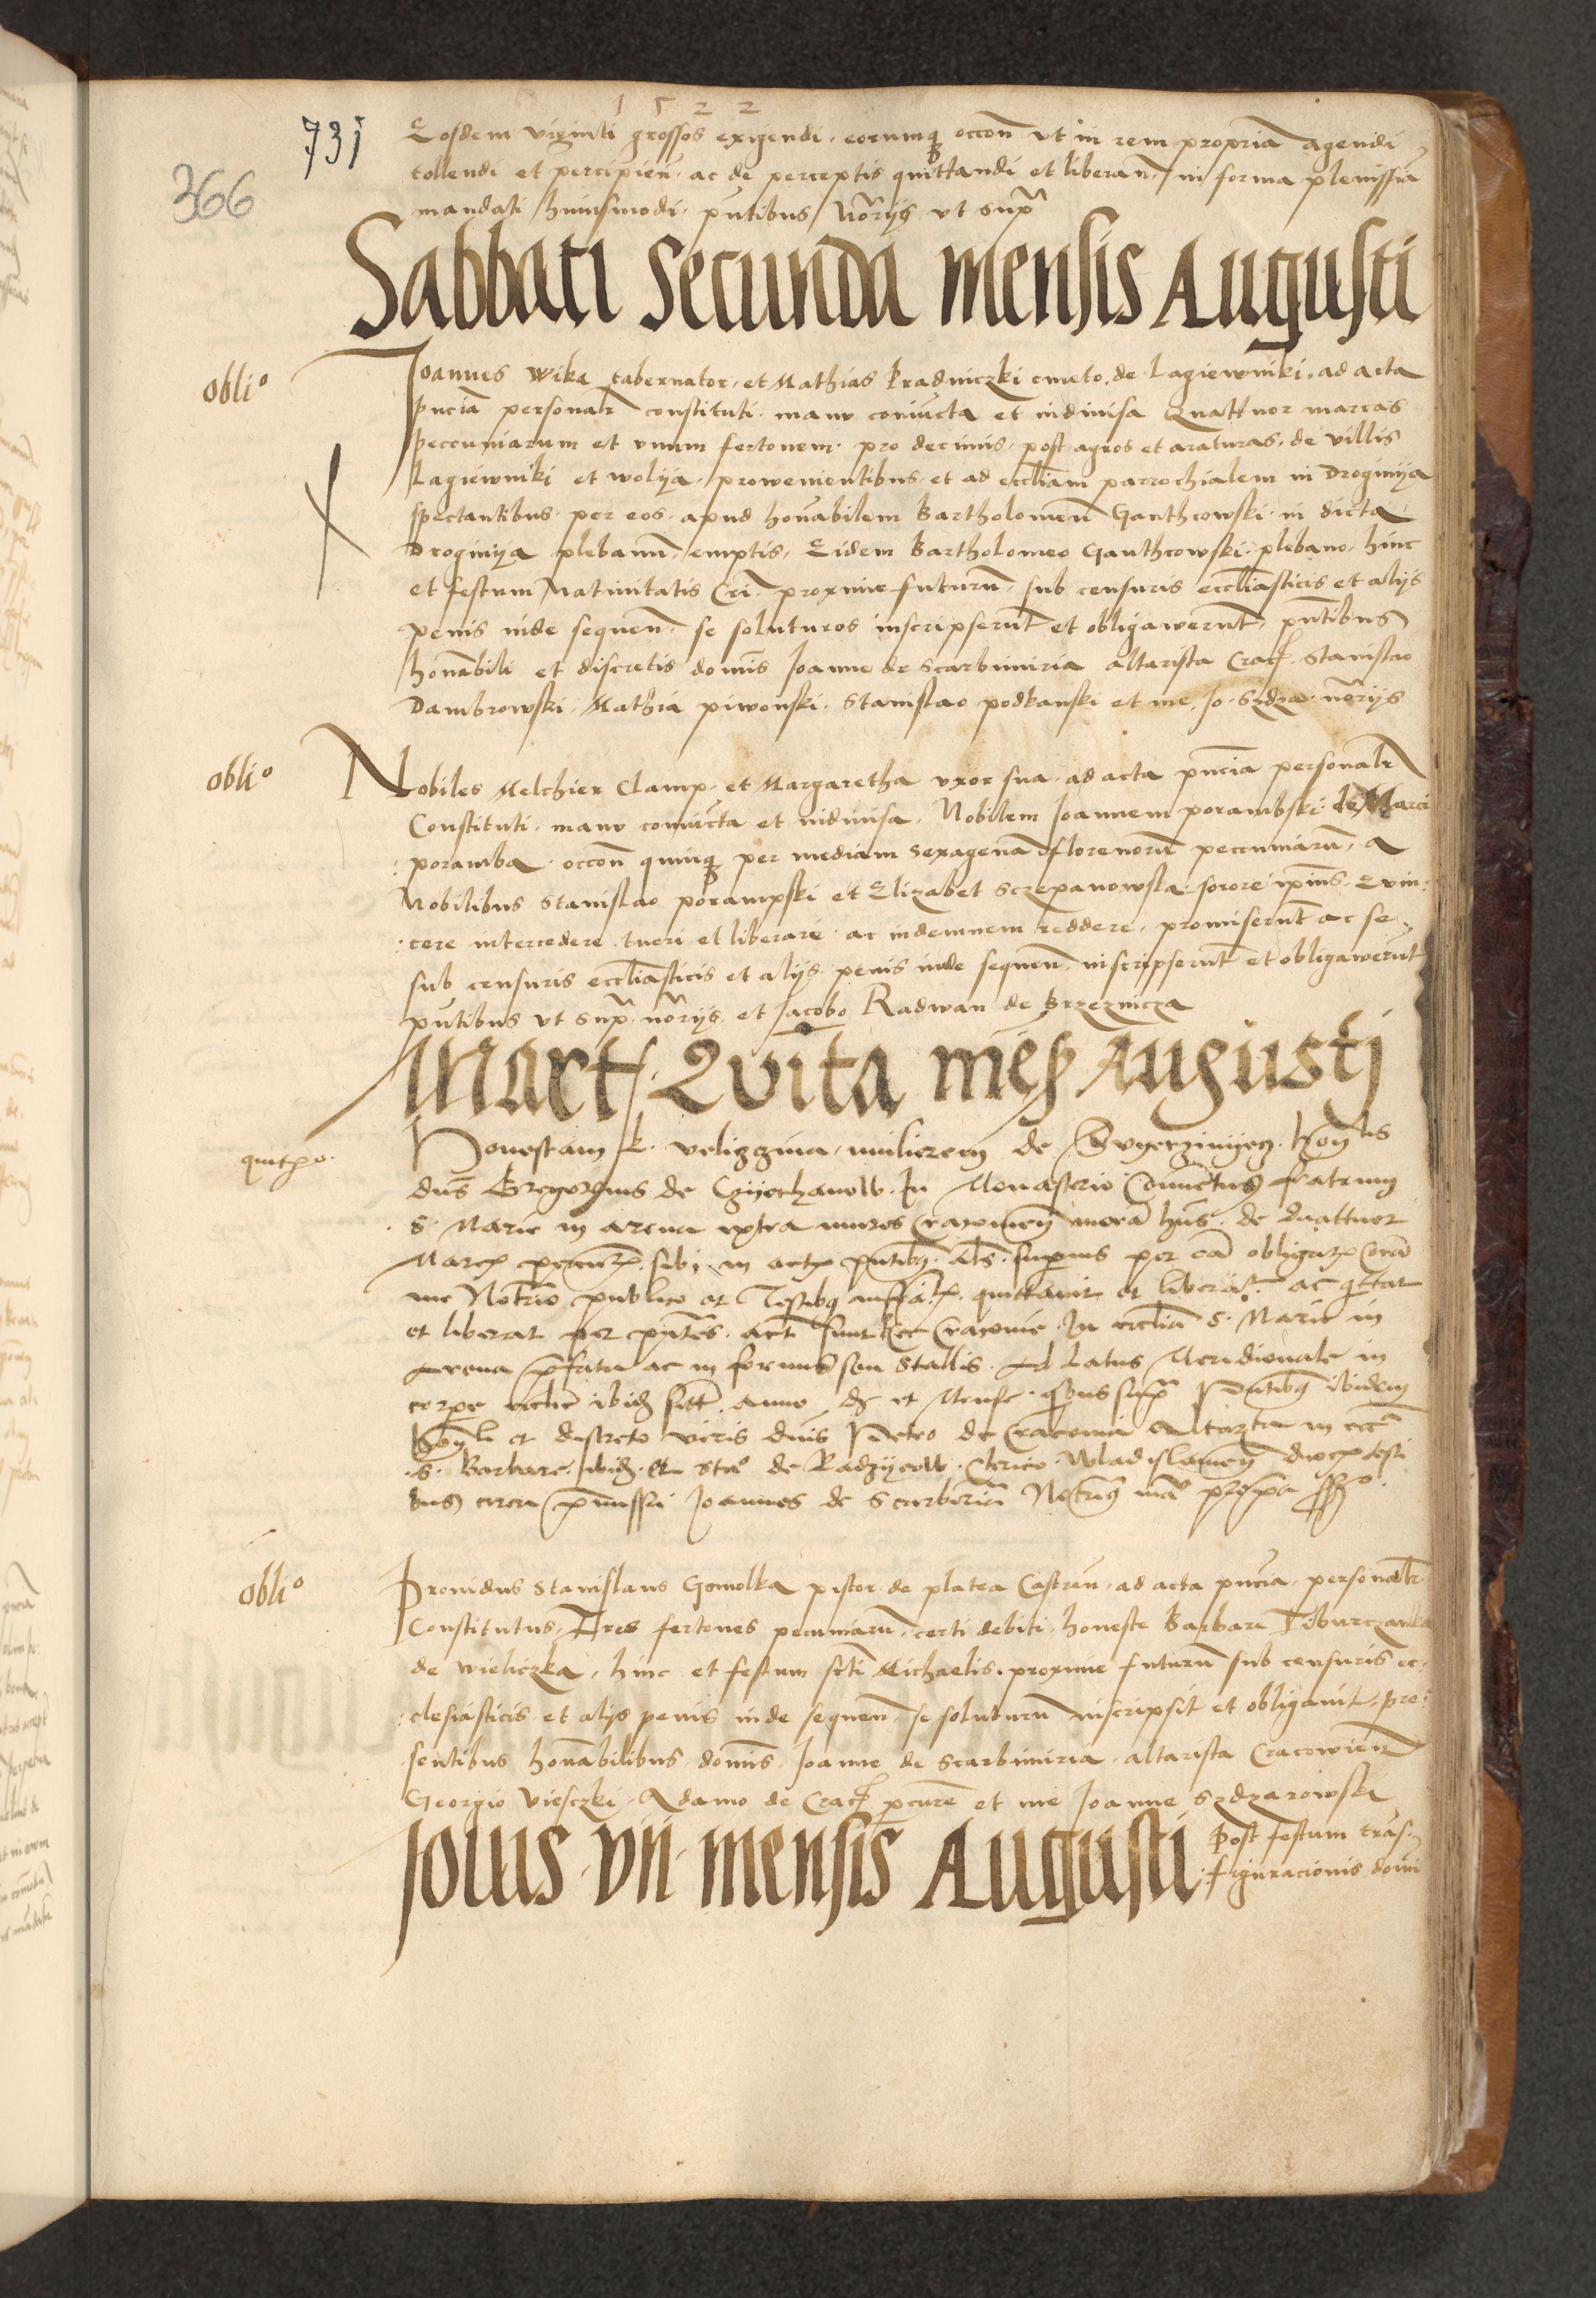 1522
731
366
Eosdem viginti grossos exigendi, eorumq occon̄ ut in rem propriā agendi
tollendi et percipien̄ ac de perceptis quittandi et liberan̄, in forma plenissīa
mandati huiusmodi, pn̄tibus No͞rijs ut sup͞
Sabbati Secunda mensis Augusti
obliᵒ
Joannes Wika tabernator, et Mathias Pradniczki cmeto, de Lagiewniki, ad acta
pn̄cia personalr̄ constituti, manu coniūcta et indiuisa Quattuor marcas
peccuniarum et vnum fertonem, pro decimis, post agros et araturas, de villis
Lagiewniki et wolija, prowenientibus, et ad eccliam parrochialem in Droginija
spectantibus, per eos, apud honābilem Bartholomeū Ganthcowski, in dicta
Droginija plebanū, emptis, Eidem Bartholomeo Ganthcowski, plebano, hinc
et festum Natiuitatis Cri, proxime futurū, sub censuris eccliasticis et alijs
penis inde sequen̄, se soluturos inscripserūt et obligawerūt, pn̄tibus
honābili et discretis domīs Joanne de Scarbimiria altarista Crac. Stanislao
Dambrowski, Mathia piwonski, Stanislao podkanski et me Jo. Szdza. no͞rijs
obliᵒ
Nobiles Melchier Clamp, et Margaretha vxor sua, ad acta pn̄cia personalr̄
Constituti, manu coniūcta et indiuisa, Nobilem Joannem porambski de Marci
poramba, occon̄ quinq per mediam sexagenā florenorū peccuniarū, a
Nobilibus Stanislao porampski et Elizabet Sczepanowska sorore ip̄ius, Euin:
:cere intercedere tueri et liberare ac indemnem reddere, promiserūt ac se
sub censuris eccliasticis et alijs penis inde sequen̄, inscripserūt et obligawerūt
pn̄tibus ut sup͞ no͞rijs et Jacobo Radwan de Brzeznicza
Mart. Qvīta mēs Augustj
quitᵒ
Honestam veligzina mulierem de
dūs Gregorius de Czijechanow. In Monasterio Conuictus fratrum
S. Marie in arena extra muros Cracouien̄ de Quattuor
Marc͞ sibi in act͞ pn̄tibus als superius per eā obligat͞ Corā
me Notario publico et Testibus quittauit et liberat ac quittat
et liberat per pn̄tes. act̄ sunt hec Cracouie. In ecclia S. Marie in
Arena ac in formis seu Stallis Ad Latus Meridionale in
corpe ecclie ibidem anno die et Mense quibus supra Pn̄tibus ibidem
et discreto viris dn̄is Petro de Cracouia altarista in
S. Barbare ibidem et Stāᵒ de Radzijeow Clerico Wladislauien̄ testi
bus circa premissa Joannes de Scarbimiria Notarius manu propria
obliᵒ
Prouidus Stanislaus Gomolka pistor de platea Castren̄, ad acta pn̄cia, personalr̄
Constitutus, Tres fertones pecuniarū, certi debiti, honeste Barbare Tiburczanka
de wieliczka, hinc et festum scti Michaelis, proxime futurū sub censuris ec:
:clesiasticis et alijs penis inde sequen̄ se soluturū inscripsit et obligauit, pre:
sentibus honābilibus domīs Joanne de Scarbimiria, altarista Cracowien̄
Georgio Viesczki, Adamo de Crac. et me Joanne Szdzarowski
Jouis vii mensis Augusti post festum trās:
:figuracionis domi